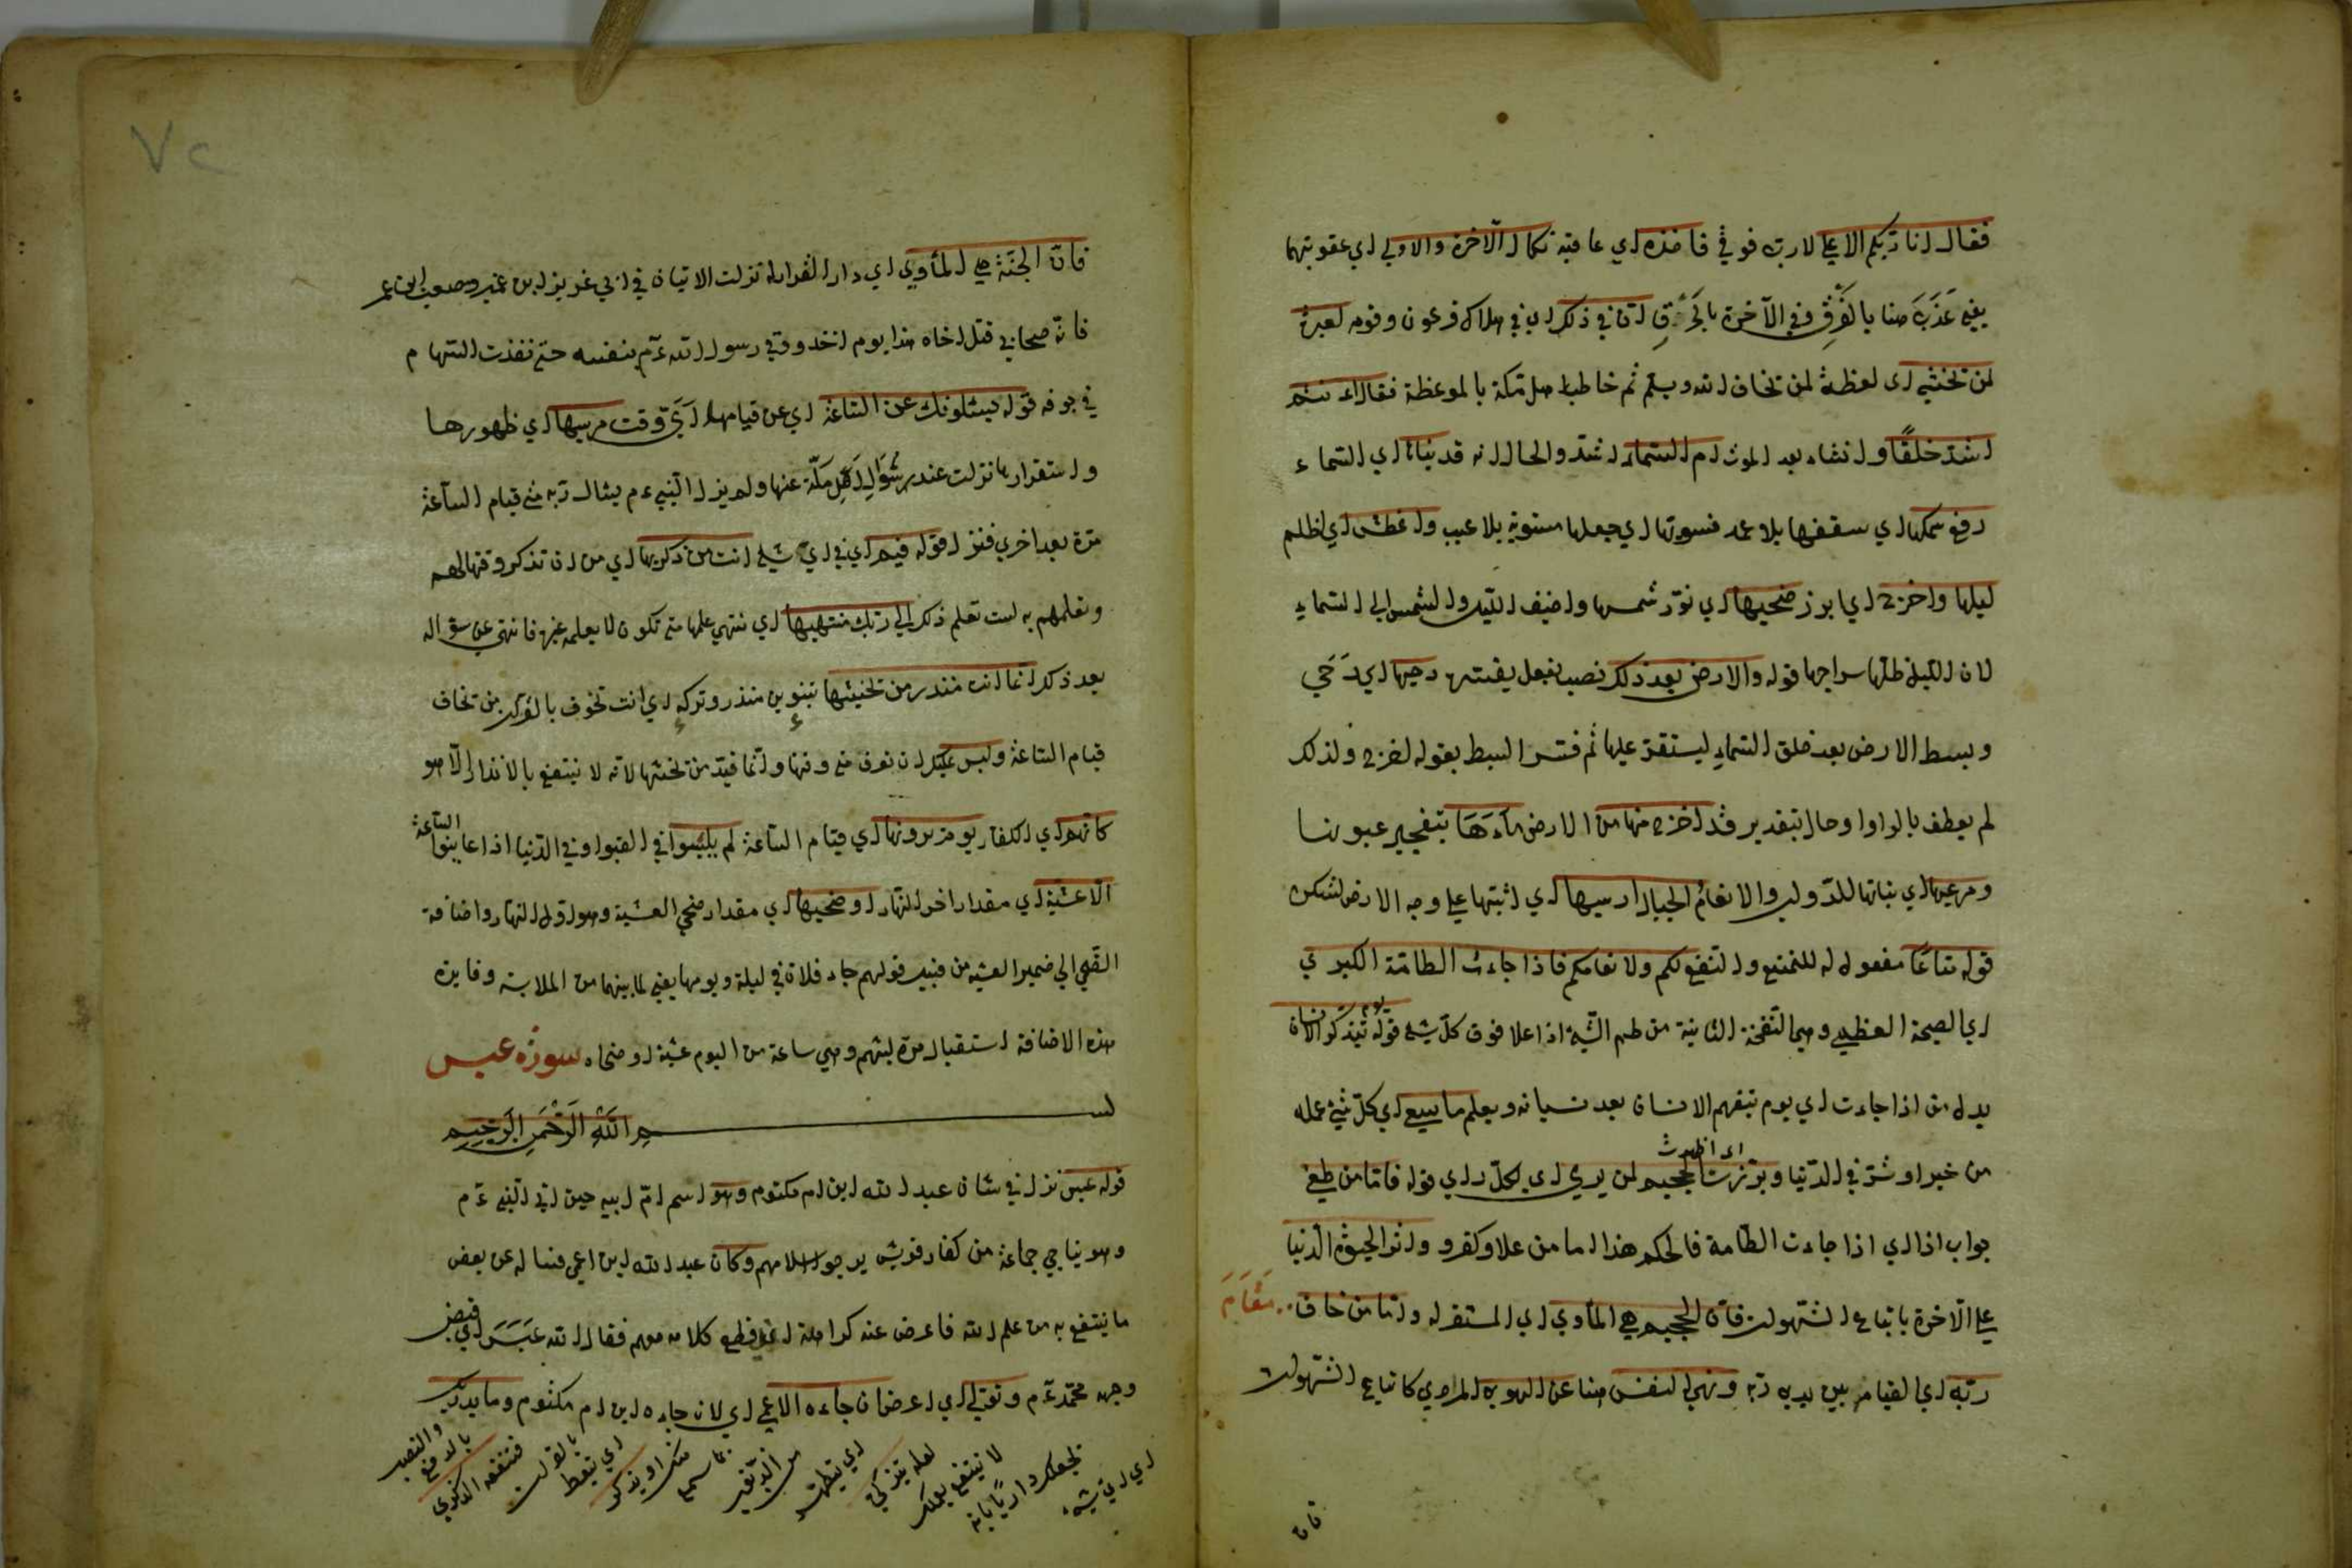 فقال انا ربكم الاعلي لا رب فوقي فاخذه اي عاقبه نكال الآخرة والاولي اي عقوبتهما
يعني عَذَّبَ هنا بالغَرْقِ وفي الآخرة بالحَرْقِ انّ في ذلك اي في هلاك فرعون وقومه لعبرة
لمن يخشي اى لعظة لمن يخاف الله ويسلم ثم خاطب اهل مكة بالموعظة فقال اءنتم
اشدّ خلقًا وانشاء بعد الموت ام السّماء اشدّ والحال انه قد بناها اي السّماء
رفع سمكها اي سقفها بلا عمد فسويها اي جعلها مستوية بلا عيب واغطش اي اظلم
ليلها واخرج اي ابرز ضحيها اي نوّر شمسها واضيف الليل والشمس الي السّماء
لان الليل ظلّها سراجها قوله والارض بعد ذلك نصب بفعل يفسّره دحيها اي دَحَي
وبسط الارض بعد خلق السّماء ليستقرّ عليها ثم فسّر البسط بقوله اخرج ولذلك
لم يعطف بالواو او حال بتقدير قد اخرج منها من الارض ماءَهَا بتفجير عيونها
ومرعيها اي نباتها للدّواب والانعام الجبال ارسيها اي اثبتها علي وجه الارض لتسكن
قوله متاعًا مفعول له للتمتيع ولتنفع لكم ولانعامكم فاذا جاءت الطامّة الكبري
اي الصيحة العظيمي وهي النّفخة الثانية من طمّ الشّئ اذا علا فوق كلّ شئ قوله يوم يتذكّر الانسان
بدل من اذا جاءت اي يوم يتفهم الانسان بعد نسيانه ويعلم ما سعي اي كلّ شئ عمله
من خير او شرّ في الدّنيا وبرّزت اى اظهرت الجحيم لمن يري اي لكلّ راي قوله فامّا من طغي
جواب اذا اي اذا جاءت الطّامة فالحكم هذا اما من علا وكفر و واثر الحيوة الدّنيا
علي الآخرة باتباع الشّهوات فانّ الجحيم هي المأوي اي المستقر له وامّا من خاف مَقَامَ
ربّه اي القيام بين يدي ربّه ونهي النفس هنا عن الهوي المردي كاتباع الشّهوات
فان
٧٢
فانّ الجنّة هي المأوي اي دار القرار له نزلت الايتان في ابي عزيز ابن عمير ومصعب ابن عمير
فانّه صحابي قتل اخاه هذا يوم اخد ووقي رسول الله ءم بنفسه حتّي نفذت السّهام
في جوفه قوله يسئلونك عن السّاعة اي عن قيامها ايّ وقت مرسيها اي ظهورها
واستقرارها نزلت عند سُؤالِ اَهْلِ مكّة عنها ولم يزل النّبي ءم يسئال ربّه متي قيام السّاعة
مرّة بعد اخري فنزل قوله فيم اي في ايّ شئ انت من ذكريها اي من ان تذكر وقتها لهم
وتعلمهم به لست تعلم ذلك الي ربّك منتهيها اي ينتهي علمها متي تكون لا يعلمه غيره فانتهي عن سؤاله
بعد ذلك انّما انت منذر من يخشيها بتنوين منذر وتركه اي انت تخوف بالقرآن من يخاف
قيام السّاعة وليس عليك ان تعرف متي وقتها وانّما قيّد بمن يخشها لانّه لا ينتفع بالانذار الّا هو
كانهم اي الكفار يوم يرونها اي قيام السّاعة لم يلبثوا في القبور او في الدّنيا اذا عاينوا السّاعة
الّا عشيّة اي مقدار اخر النّهار او ضحيها اي مقدار ضحي العشية وهو اوّل النّهار واضافة
الضّحي الي ضمير العشيه من قبيل قولهم جاء فلان في ليلة ويومها يعني لما بينهما من الملابسة وفايدة
هذه الاضافة استقبال مدّة لبثهم وهي ساعة من اليوم عشيّة او ضحاه سورة عبس
بسم الله الرّحمن الرّحيم
قوله عبس نزل في شان عبد الله ابن ام مكتوم وهو اسم امّ ابيه حين اتي النّبي ءم
وهو يناجي جماعة من كفار قريش يرجو اسلامهم وكان عبد الله ابن اعمي فساله عن بعض
ما ينتفع به من علم الله فاعرض عنه كراهة ان يقطع كلامه معهم فقال الله عَبَسَ اي قبض
وجهه محمّد ءم وتوّلي اي اعرض ان جاءه الاعمي اي لان جاءه ابن ام مكتوم وما يدريك
اي ايّ شئ يجعلك داريًا بانه لا ينتفع بعملك لعله يتزكّي اي يتطهّر من الذّنوب بما سمع منك او يذكّر اي يتعظ بالقرات فتنفعه الذكري بالرفع والنصب